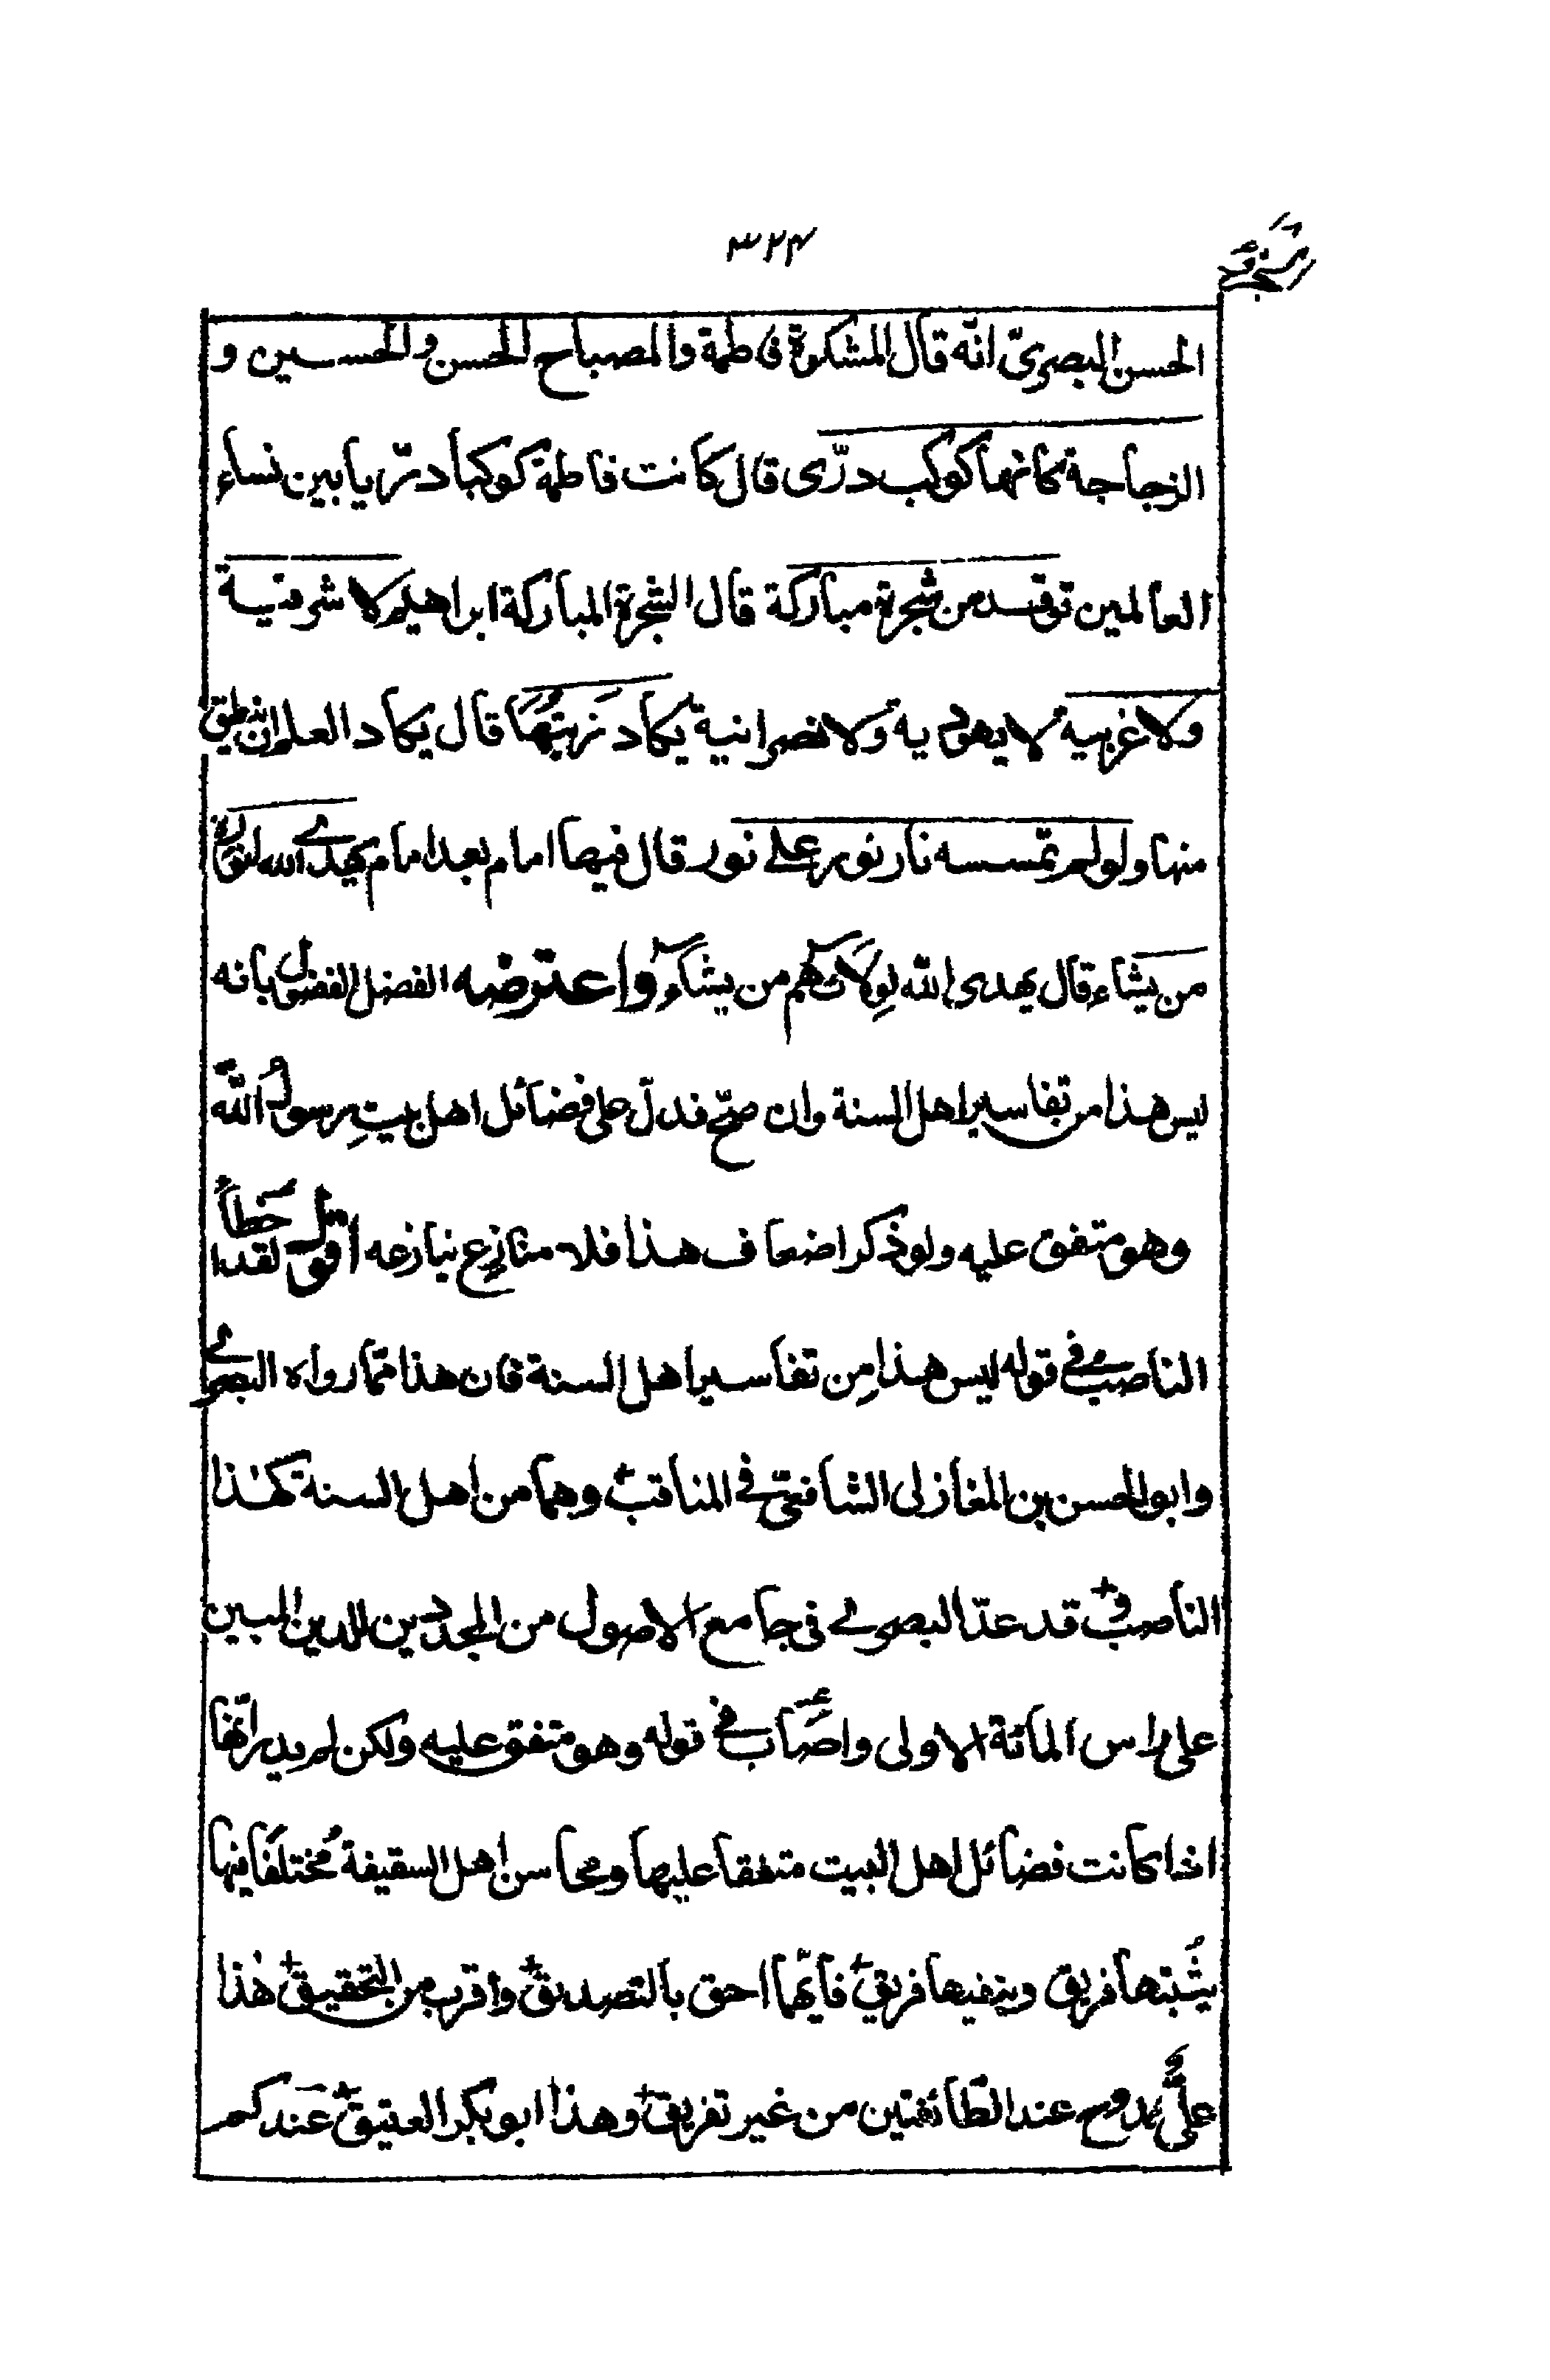 ٣٢٤
الحسن البصريّ انّه قال المشكوة فاطمة والمصباح الحسن والحسين و
الزجاجة كانها كوكب درّى قال كانت فاطمة كوكبا درّيا بين نساء
العالمين توقد من شجرة مباركة قال الشجرة المباركة ابراهيم لا شرقية
ولا غربية لا يهودية ولا نصرانية يكاد زيتها قال يكاد العلم ان ينطق
منها ولو لم تمسسه نار نور على نور قال فيها امام بعد امام يهدي الله لنوره
من يشاء قال يهدى الله لولايتهم من يشاء واعترضه الفضل الفضول بانه
ليس هذا من تفاسير اهل السنة وان صحّ فدلّ على فضائل اهل بيت رسول الله
وهو متفق عليه ولو ذكر اضعاف هذا فلا منازع ينازعه اقول لقد اخطأ
الناصب في قوله ليس هذا من تفاسير اهل السنة فان هذا ممّا رواه البصري
وابو الحسن بن المغازلى الشافعيّ في المناقب وهما من اهل السنة كهذا
الناصب قد عدّ البصرے فى جامع الاصول من المجددين للدين المبين
على راس المائة الاولى واصاب في قوله وهو متفق عليه ولكن لم يدر انّها
اذا كانت فضائل اهل البيت متفقا عليها ومحاسن اهل السقيفة مختلفا فيها
يثبتها فريق وينفيها فريق فايّهما احق بالتصديق واقرب من التحقيق هٰذا
علىّ ممدوح عند الطائفتين من غير تفريق وهذا ابو بكر العتيق عندكم